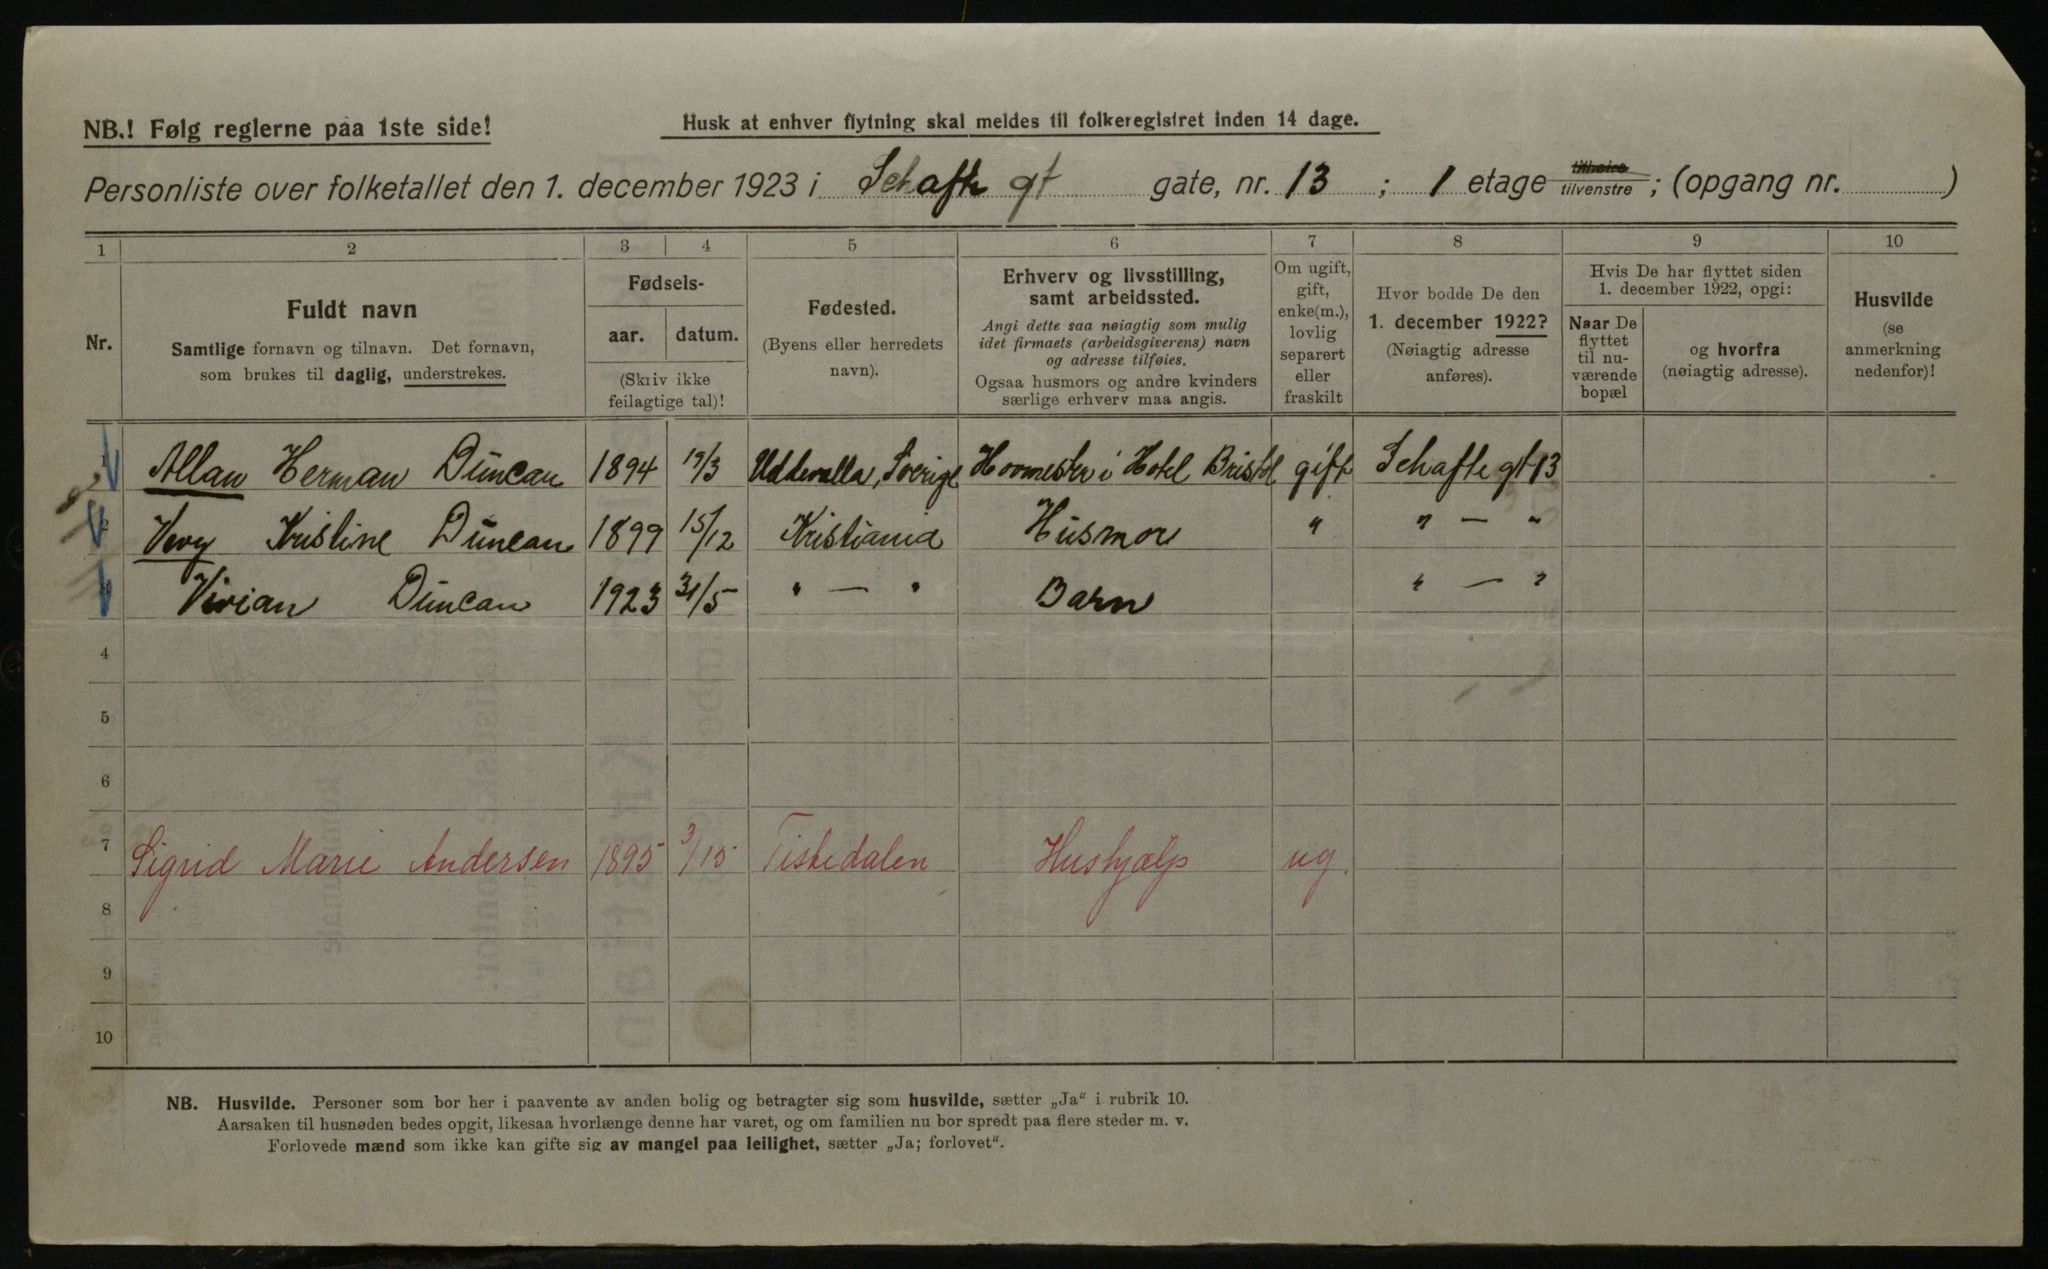 NB.! Følg reglerne paa 1ste side!
Husk at enhver flytning skal meldes til folkeregistret inden 14 dage.
Personliste over folketallet den 1. december 1923 i Schafte gt gate, nr. 13 ; 1 etage tilhøire tilvenstre ; (opgang nr. )
1 2 3 4 5 6 7 8 9 10
Nr.
Fuldt navn
Samtlige fornavn og tilnavn. Det fornavn,
som brukes til daglig, understrekes.
Fødsels-
aar. datum.
(Skriv ikke
feilagtige tal)!
Fødested.
(Byens eller herredets
navn).
Erhverv og livsstilling,
samt arbeidssted.
Angi dette saa nøiagtig som mulig
idet firmaets (arbeidsgiverens) navn
og adresse tilføies.
Ogsaa husmors og andre kvinders
særlige erhverv maa angis.
Om ugift,
gift,
enke(m.),
lovlig
separert
eller
fraskilt
Hvor bodde De den
1. december 1922?
(Nøiagtig adresse
anføres).
Hvis De har flyttet siden
1. december 1922, opgi:
Naar De
flyttet
til nu-
værende
bopæl
og hvorfra
(nøiagtig adresse).
Husvilde
(se
anmerkning
nedenfor)!
1 Allan Herman Duncan 1894 19/3 Uddevalla, Sverige Hovmester i Hotel Bristol gift Schafte gt 13
2 Kristine Duncan 1899 15/12 Kristiania Husmor " " — "
Vivian Duncan 1923 31/5 " — " Barn " — "
4
5
6
7 Sigrid Marie Andersen 1895 3/10 Tistedalen Hushjælp ug.
8
9
10
NB. Husvilde. Personer som bor her i paavente av anden bolig og betragter sig som husvilde, sætter „Ja" i rubrik 10.
Aarsaken til husnøden bedes opgit, likesaa hvorlænge denne har varet, og om familien nu bor spredt paa flere steder m. v.
Forlovede mænd som ikke kan gifte sig av mangel paa leilighet, sætter „Ja; forlovet".